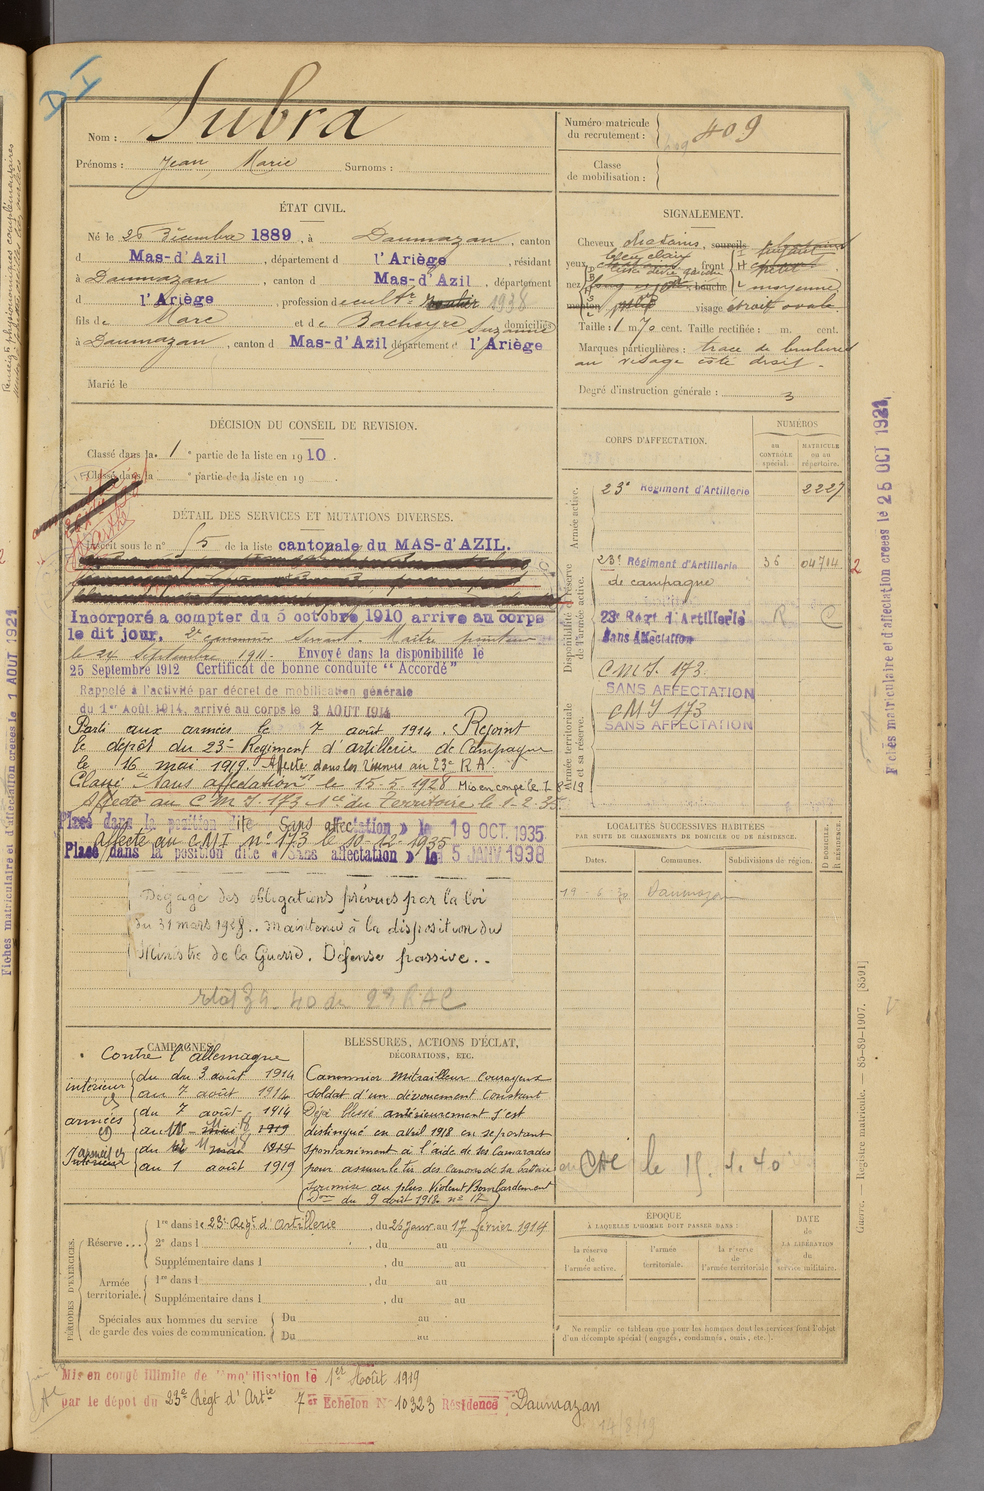 D I
Nom : Subra
Prénoms : Jean Marie Surnoms :
ÉTAT CIVIL.
Né le 26 Décembre 1889, à Daumazan, canton
d Mas-d'Azil, département d l'Ariège, résidant
à Daumazan, canton d Mas-d'Azil, département
d l'Ariège, profession de cultr 1938
fils de Marc et de Bachoyre Suzanne domiciliés
à Daumazan, canton d Mas-d'Azil département d l'Ariège
Marié le
DÉCISION DU CONSEIL DE REVISION.
Classé dans la 1e partie de la liste en 1910.
Classé dans la e partie de la liste en 19
DÉTAIL DES SERVICES ET MUTATIONS DIVERSES.
Inscrit sous le n° 55 de la liste cantonale du MAS-d'AZIL.
Incorporé a compter du 5 octobre 1910 arrivé au corps
le dit jour. 2e canonnier servant. Maître pointeur
le 24 Septembre 1911. Envoyé dans la disponibilité le
25 Septembre 1912 Certificat de bonne conduite "Accordé"
Rappelé à l'activité par décret de mobilisation générale
du 1er Août 1914, arrivé au corps le 3 AOUT 1914
Parti aux armées le 7 août 1914. Rejoint
le dépôt du 23e Régiment d'artillerie de Campagne
le 16 mai 1919. Affecté dans les réserves au 23e R A.
Classé "Sans affectation" le 15.5.1928 Mis en congé le 1.8.19
Affecté au C M I. 173 1ce du territoire le 1-2-35
Placé dans la position dite « Sans affectation » le 19 OCT. 1935
Affecté au CMI n° 173 le 10-12-1935
Placé dans la position dite « Sans affectation » le 5 JANV 1938
Dégagé des obligations prévues par la loi
du 31 mars 1928.. maintenu à la disposition du
Ministre de la Guerre. Défense passive..
39-40 du 28 RAC
CAMPAGNES
Contre l'allemagne
intérieur du 3 août 1914
au 7 août 1914
armées du 7 août 1914
au 1919
Intérieur du
au 1 août 1919
BLESSURES, ACTIONS D'ÉCLAT,
DÉCORATIONS, ETC.
Canonnier mitrailleur Courageux
soldat d'un dévouement constant
Déjà blessé antérieurement s'est
distingué en avril 1918 en se portant
spontanément à l'aide de ses camarades
pour assurer le tir des canons de sa batterie
soumise au plus Violent Bombardement
(Don du 9 août 1918. n° 17)
PÉRIODES D'EXERCICES.
Réserve ... 1re dans le 23e Régt d'Artillerie, du 26 janv. au 17 février 1914
2e dans l , du au
Supplémentaire dans l , du au
Armée territoriale. 1re dans l , du au
Supplémentaire dans l , du au
Spéciales aux hommes du service Du au
de garde des voies de communication. Du au
Mis en congé illimité de démobilisation le 1er Août 1919
par le dépôt du 23e Régt d'Artie 7er Echelon N° 10323 Résidence Daumazan
14/8/19
Numéro matricule
du recrutement : 409
Classe
de mobilisation :
SIGNALEMENT.
Cheveux chatains, sourcils
yeux bleu clair front
nez bouche moyenne
visage ovale
Taille : 1 m. 70 cent. Taille rectifiée : m. cent.
Marques particulières : trace de brulures
au visage côté droit.
Degré d'instruction générale : 3
CORPS D'AFFECTATION.
NUMÉROS
au contrôle spécial.
matricule ou au répertoire.
Armée active.
23e Régiment d'Artillerie 2227
Disponibilité et réserve de l'armée active.
23e Régiment d'Artillerie 36 04714 2
de campagne
23e Régt d'Artillerie R C
Sans Affectation
Armée territoriale et sa réserve.
C M I. 173
SANS AFFECTATION
C M I 173
SANS AFFECTATION
LOCALITÉS SUCCESSIVES HABITÉES
PAR SUITE DE CHANGEMENTS DE DOMICILE OU DE RÉSIDENCE.
Dates. Communes. Subdivisions de région. D DOMICILE. R RÉSIDENCE.
19-6-30 Daumazan
CAC le 15.4.40
ÉPOQUE
À LAQUELLE L'HOMME DOIT PASSER DANS :
la réserve de l'armée active.
l'armée territoriale.
la réserve de l'armée territoriale
DATE DE LA LIBÉRATION du service militaire.
Ne remplir ce tableau que pour les hommes dont les services font l'objet
d'un décompte spécial (engagés, condamnés, omis, etc.).
Fiches matriculaire et d'affectation créées le 25 OCT 1921.
Guerre. — Registre matricule. — 85-89-1907. [8591]
Fiches matriculaire et d'affectation créées le 1 AOUT 1921